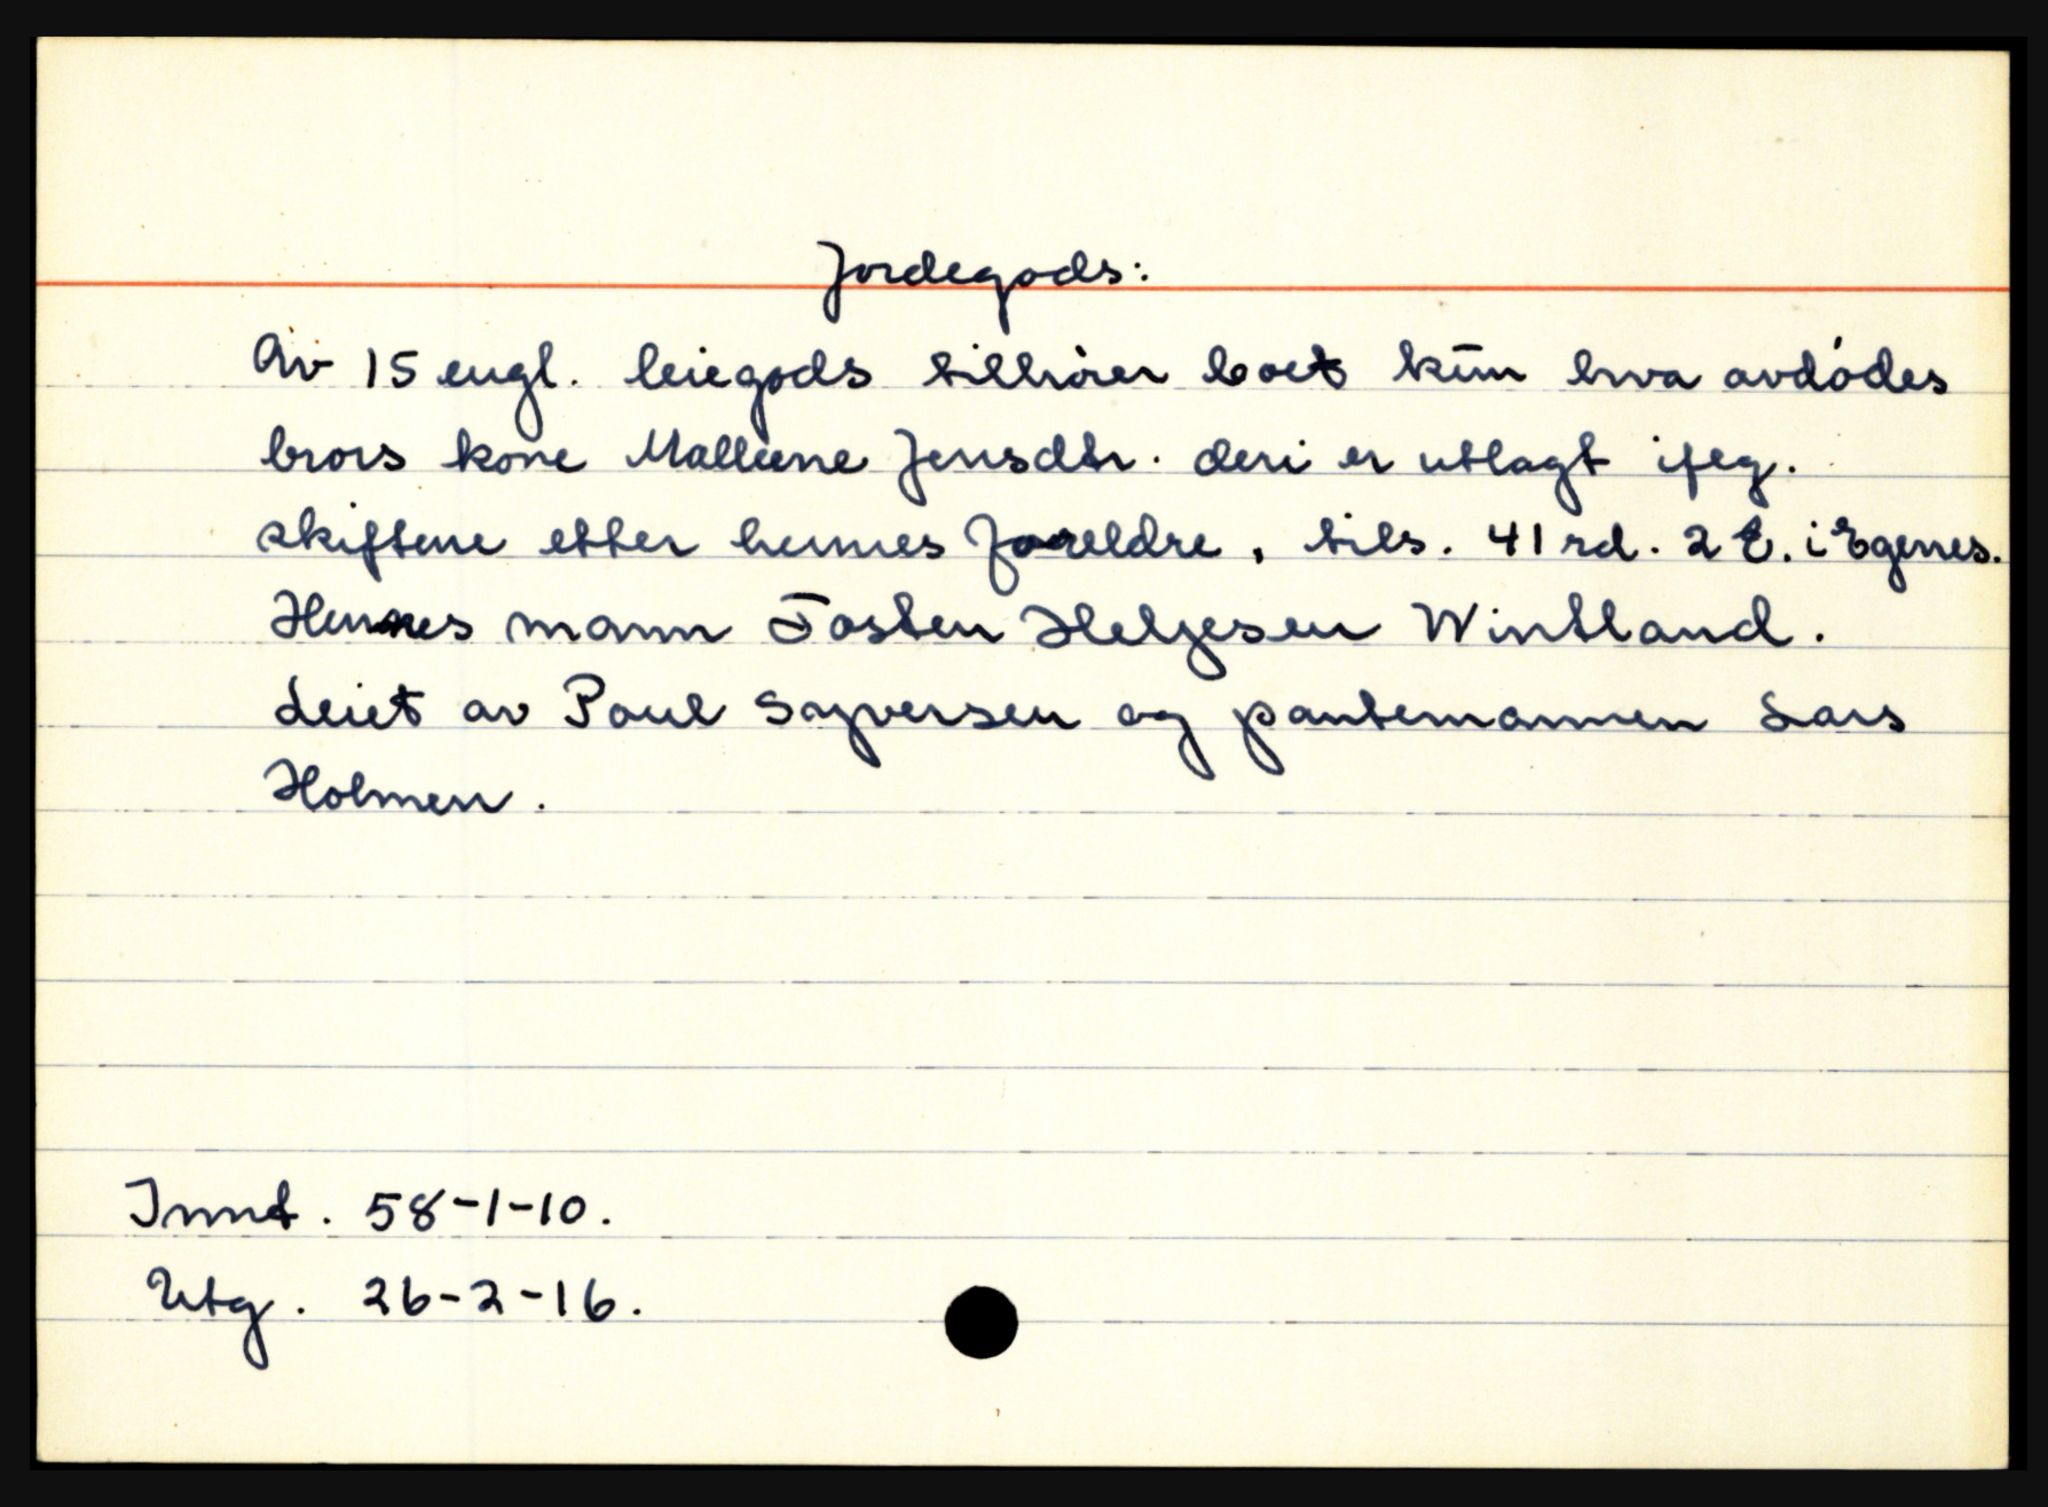 Jordegods:
Av 15 engl. leiegods tilhører boet kūn hva avdødes
brors kone Malleene Jensdtr. deri er utlagt ifeg.
skiftene etter hennes foreldre, tils. 41 rd. 2 E. i Egenes.
Hennes mann Tosten Helgesen Wintland.
Leiet av Poul Syversen og pantemannen Lars
Holmen.
Innt. 58-1-10.
Utg. 26-2-16.